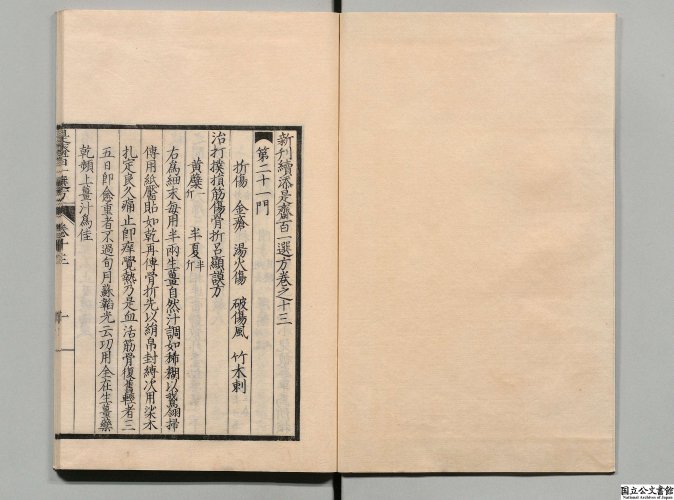 新刊續添是齋百一選方卷之十三
第二十一門
折傷 金瘡 湯火傷 破傷風 竹木刺
治打撲損筋傷骨折呂顯謨方
黄蘗一斤 半夏半斤
右為細末每用半兩生薑自然汁調如稀糊以鵞翎掃
傅用紙靨貼如乾再傅骨折先以絹帛封縛次用柒木
扎定良久痛止即痒覺熱乃是血活筋骨復舊輕者三
五日即愈重者不過旬月蘇韜光云功用全在生薑藥
乾頻上薑汁為佳
是齋百一選方 卷十三 一
国立公文書館
National Archives of Japan